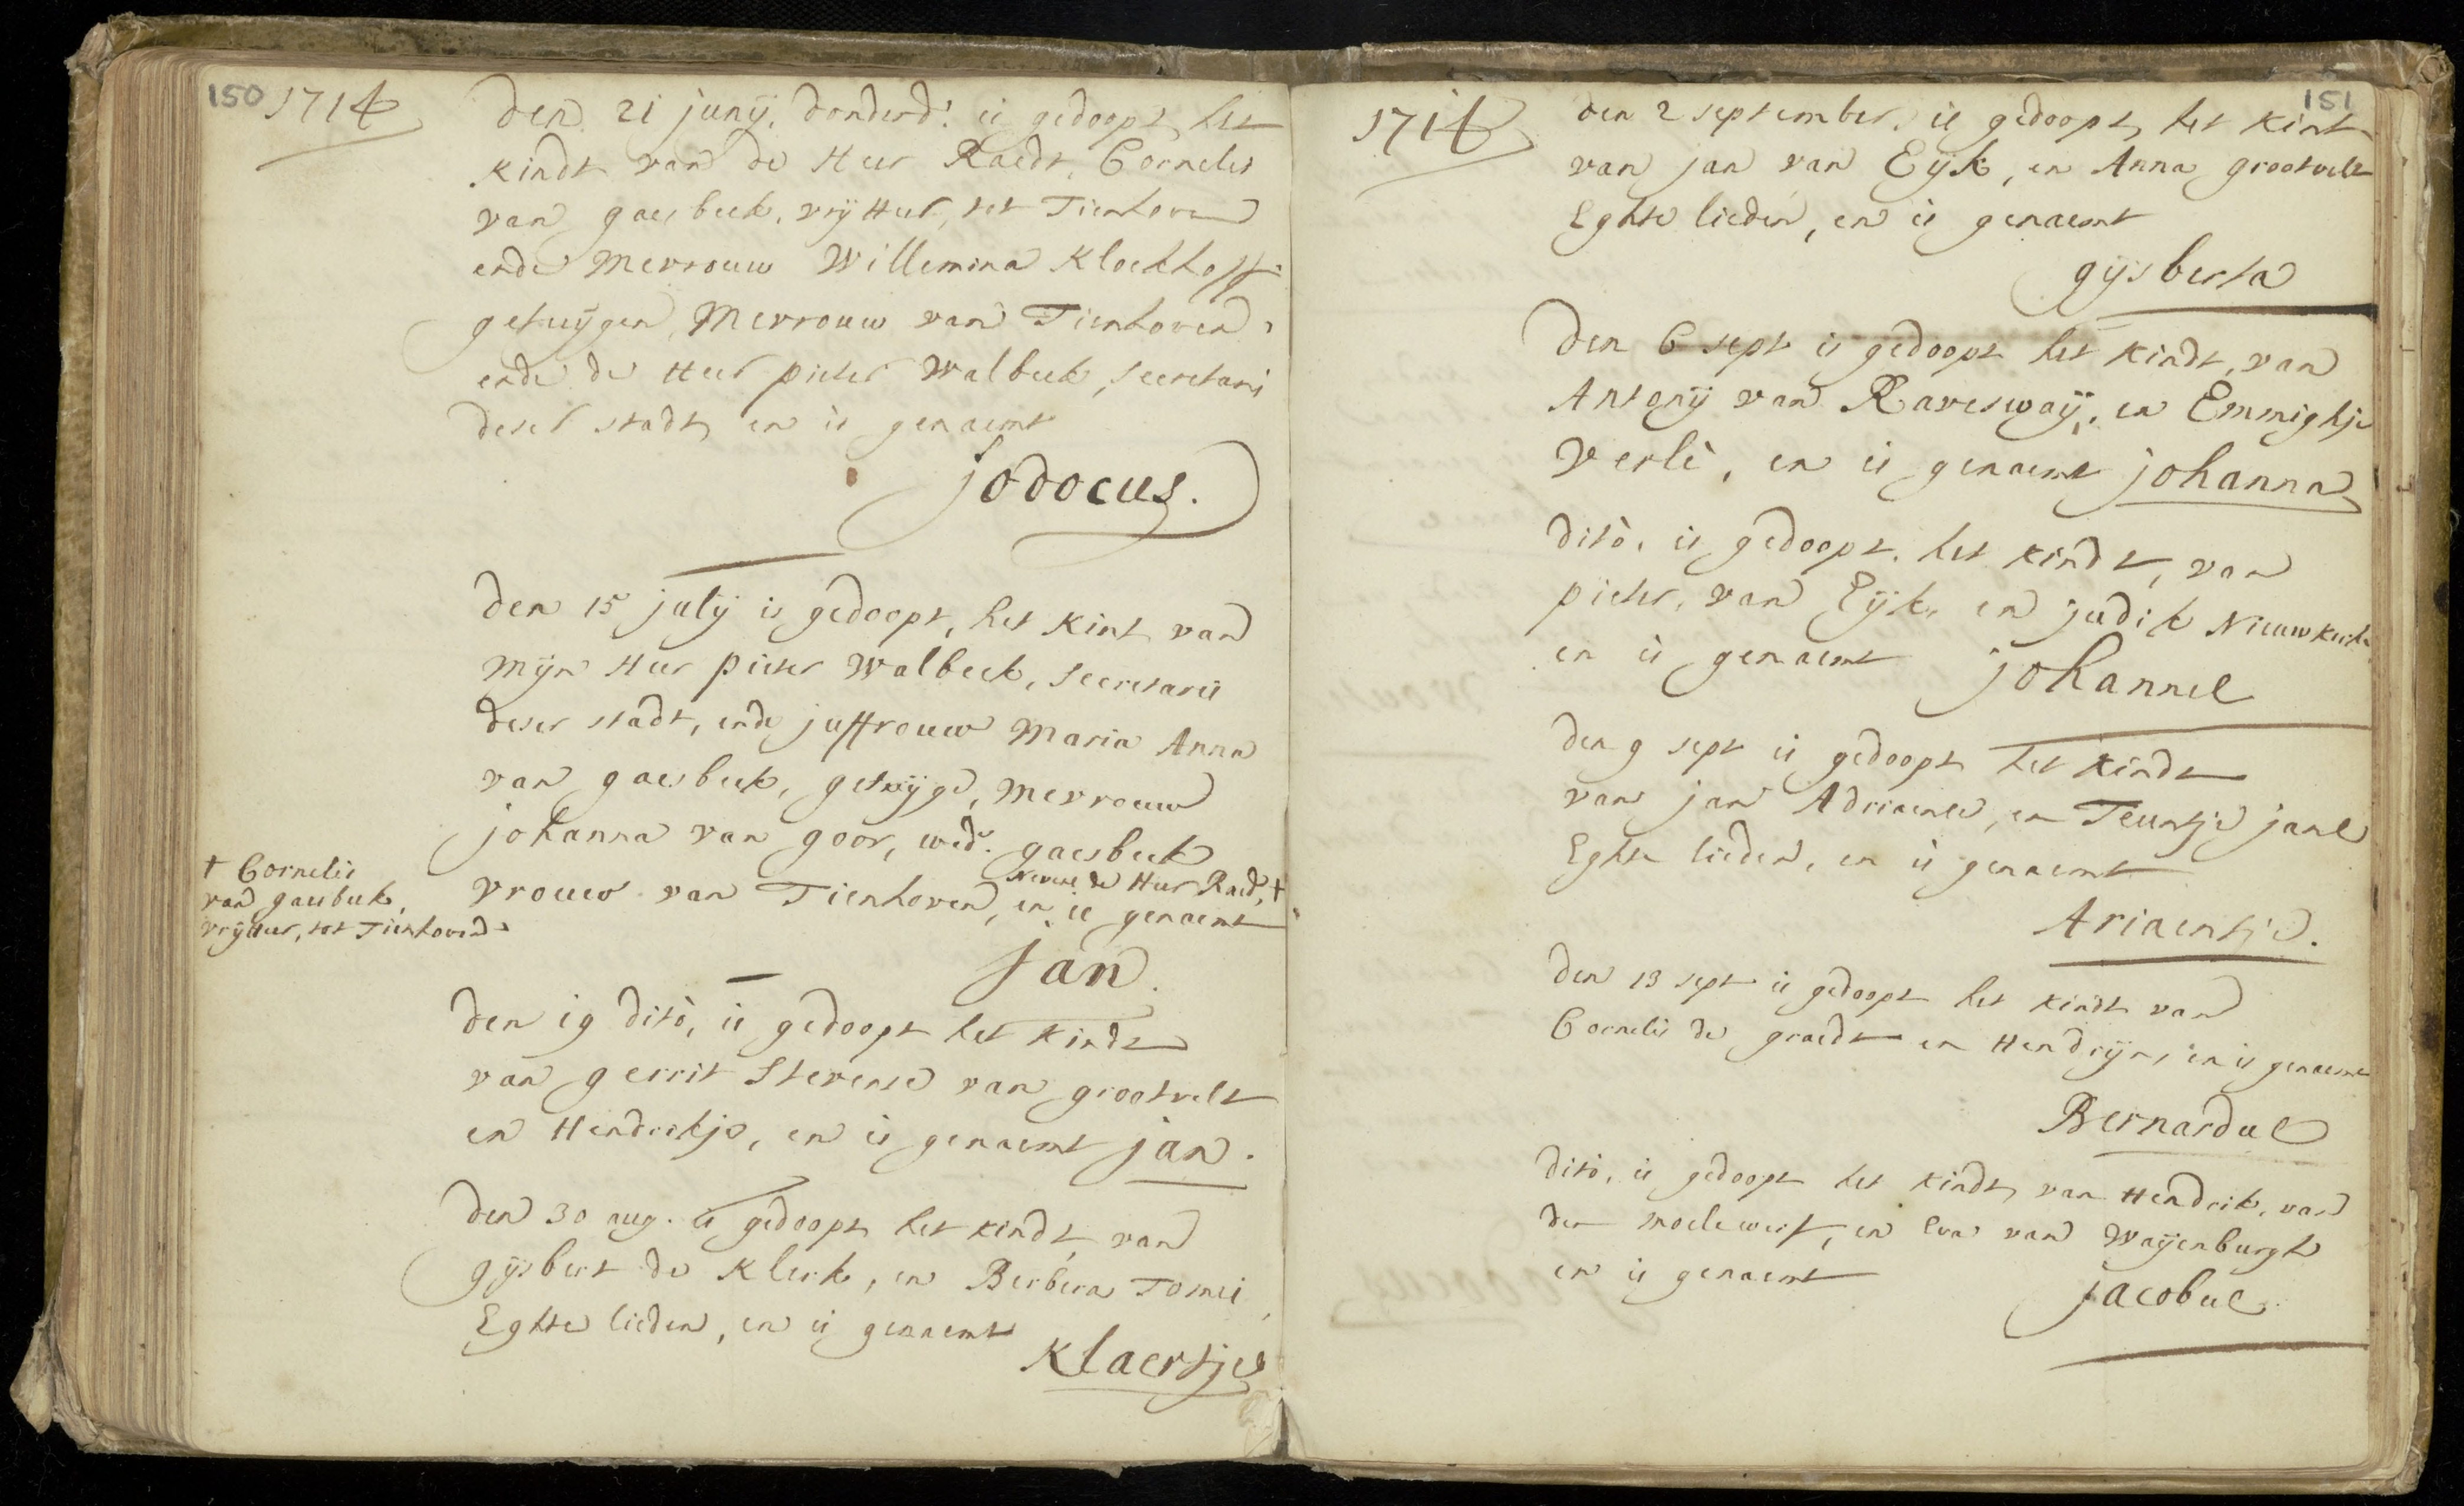 150 1714
Den 21 junij, donderd: is gedoopt, het
kindt van de Heer Raedt, Cornelis
van gaesbeek, vrijHeer, tot Tienhoven
ende Mevrouw Willemina Kloekhoff
getuijgen, Mevrouw van Tienhoven,
ende de Heer pieter Walbeek, secretaris
deser stadt, en is genaemt
jodocus.
Den 15 julij is gedoopt, het kint van
Mijn Heer pieter Walbeek, secretaris
deser stadt, ende juffrouw Maria Anna
van gaesbeek, getuijge, Mevrouw
johanna van goor, wede. gaesbeek
vrouw van Tienhoven, en is genaemt
nevens de Heer Raed, †
† Cornelis
van gaesbeek,
vrijHeer, tot Tienhoven
Jan.
Den 19 ditò, is gedoopt het kindt
van gerrit Stevense van grootvelt
en Hendrikje, en is genaemt jan.
Den 30 aug. is gedoopt, het kindt van
gijsbert de Klerk, en Berbera Tomei
Eghte lieden, en is genaemt
Klaertje
151
1714
Den 2 september, is gedoopt, het kint
van jan van Eijk, en Anna grootvelt
Eghte lieden, en is genaemt
gijsberta
Den 6 sept is gedoopt het kindt, van
Antonij van Raveswaij, en Emmighje
Verlè, en is genaemt johanna
Ditò, is gedoopt, het kindt, van
pieter, van Eijk, en judik Nieuwkerk
en is genaemt johannes
Den 9 sept is gedoopt het kindt
van jan Adriaense, en Teuntje jans
Eghte lieden, en is genaemt
Ariaentje.
Den 13 sept is gedoopt het kindt van
Cornelis de graedt en Hendrijn, en is genaemt
Bernardus
Ditò, is gedoopt het kindt, van Hendrik, van
der meulewerf, en Eva van Waijenburgh
en is genaemt jacobus